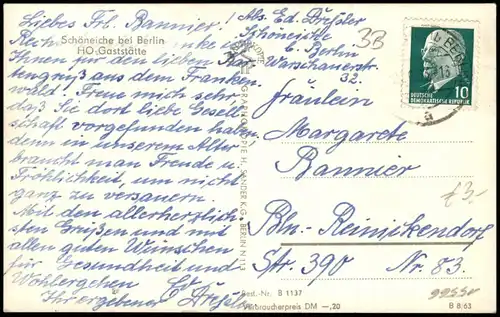 Liebes Frl. Bannier!
Schöneiche bei Berlin
HO-Gaststätte
Rech danke
Ihnen für den lieben Kar
tengruß aus dem Franken
wald. Freue mich sehr,
daß Sie dort liebe Gesell
schaft vorgefunden haben
denn in unserem Alter
braucht man Freude u.
Fröhlichkeit, um nicht
ganz zu versauern.
Mit den allerherzlich-
sten Grüßen und mit
allen guten Wünschen
für Gesundheit und
Wohlergehen
Ihr ergebener Ed. Dreßler
GRAPHOKOPIE H. SANDER K.G. BERLIN N 113
Abs. Ed. Dreßler
Schöneiche
b. Berlin
Warschauerstr.
32.
3B
10
DEUTSCHE
DEMOKRATISCHE REPUBLIK
Fräulein
Margarete
Bannier
Bln.-Reinickendorf
Str. 390 Nr. 83.
£3.
Best.-Nr. B 1137
Verbraucherpreis DM -,20
B 8/63